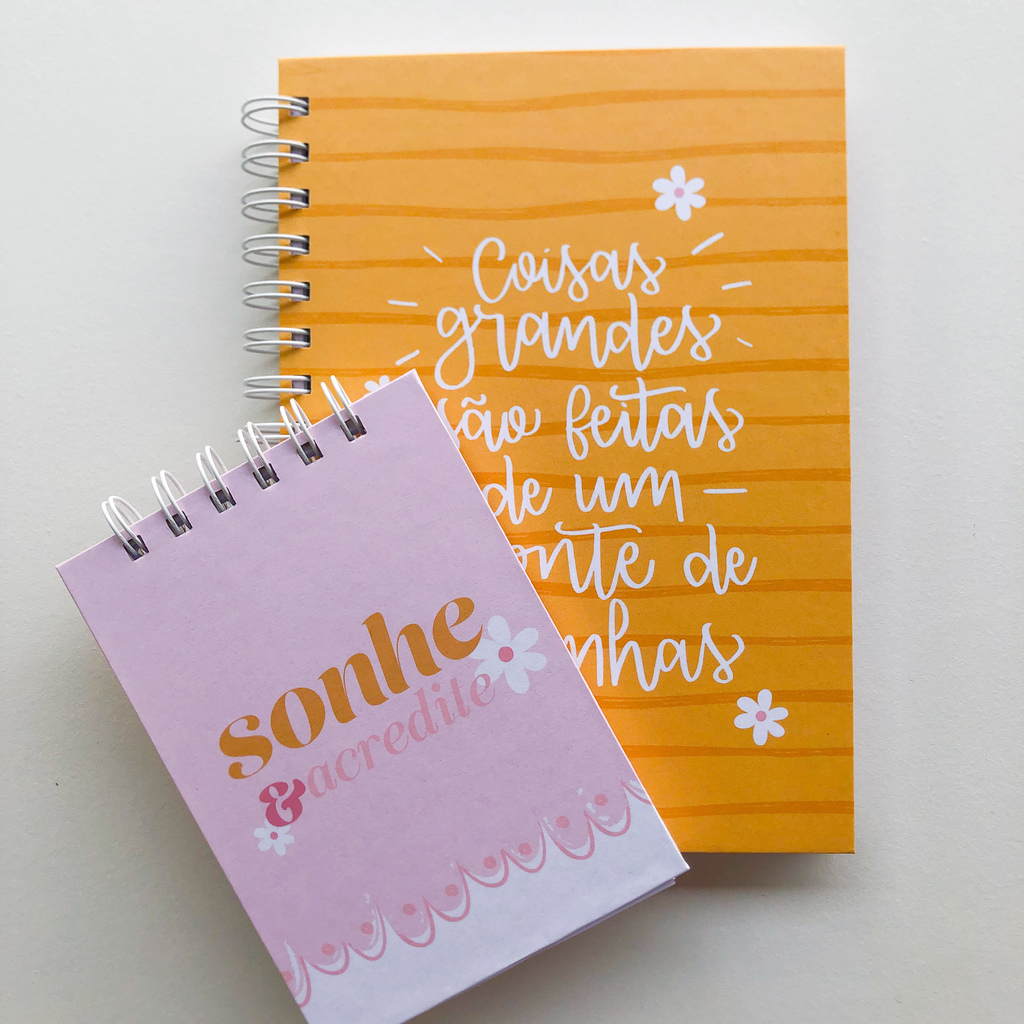 Coisas
grandes
são feitas
de um
de
sonhe
& acredite